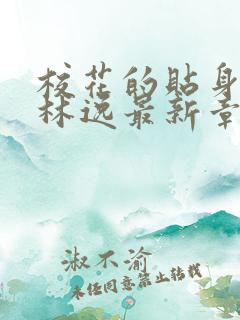 校花的贴身
林逸最新章
淑不渝
未经同意禁止转载